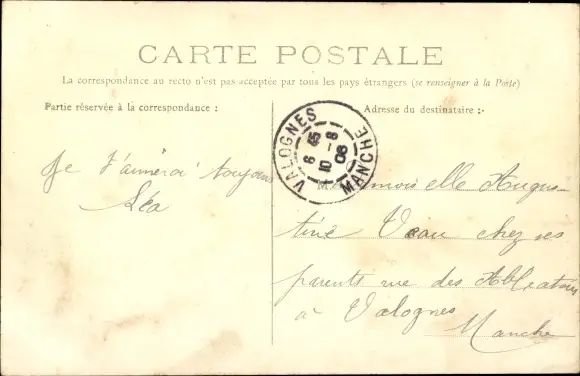 CARTE POSTALE
La correspondance au recto n'est pas acceptée par tous les pays étrangers (se renseigner à la Poste)
Partie réservée à la correspondance :
Adresse du destinataire :
VALOGNES
6 45
10 - 8
08
MANCHE
Je t'aimerai toujours
Léa
Mademoiselle Augus-
tine Veau chez ses
parents rue des
à Valognes
Manche